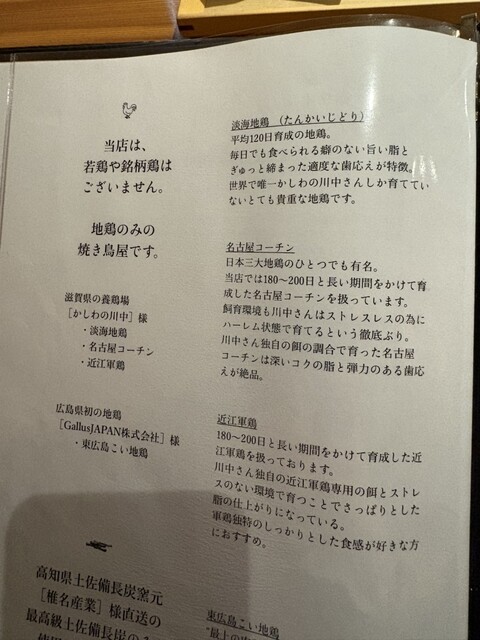 当店は、
若鶏や銘柄鶏は
ございません。
地鶏のみの
焼き鳥屋です。
滋賀県の養鶏場
［かしわの川中］様
・淡海地鶏
・名古屋コーチン
・近江軍鶏
広島県初の地鶏
［GallusJAPAN株式会社］様
・東広島こい地鶏
高知県土佐備長炭窯元
［椎名産業］様直送の
最高級土佐備長炭のみ
淡海地鶏 （たんかいじどり）
平均120日育成の地鶏。
毎日でも食べられる癖のない旨い脂と
ぎゅっと締まった適度な歯応えが特徴。
世界で唯一かしわの川中さんしか育ててい
ないとても貴重な地鶏です。
名古屋コーチン
日本三大地鶏のひとつでも有名。
当店では180～200日と長い期間をかけて育
成した名古屋コーチンを扱っています。
飼育環境も川中さんはストレスレスの為に
ハーレム状態で育てるという徹底ぶり。
川中さん独自の餌の調合で育った名古屋
コーチンは深いコクの脂と弾力のある歯応
えが絶品。
近江軍鶏
180～200日と長い期間をかけて育成した近
江軍鶏を扱っております。
川中さん独自の近江軍鶏専用の餌とストレ
スのない環境で育つことでさっぱりとした
脂の仕上がりになっている。
軍鶏独特のしっかりとした食感が好きな方
におすすめ。
東広島こい地鶏